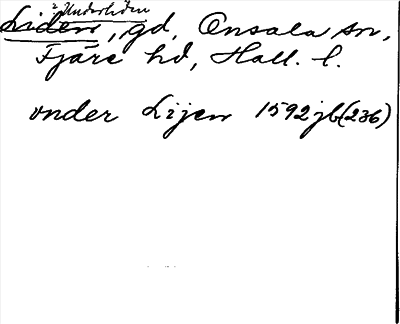 2 Underliden
Liden, gd, Onsala sn,
Fjäre hd, Hall. l.
vnder Lijen 1592 jb (236)